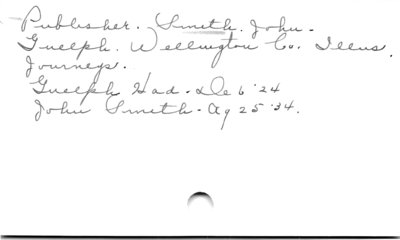 Publisher. Smith, John.
Guelph. Wellington Co. Illus.
Journeys.
Guelph Had. De 6 '24
John Smith - Ag 25 '34.